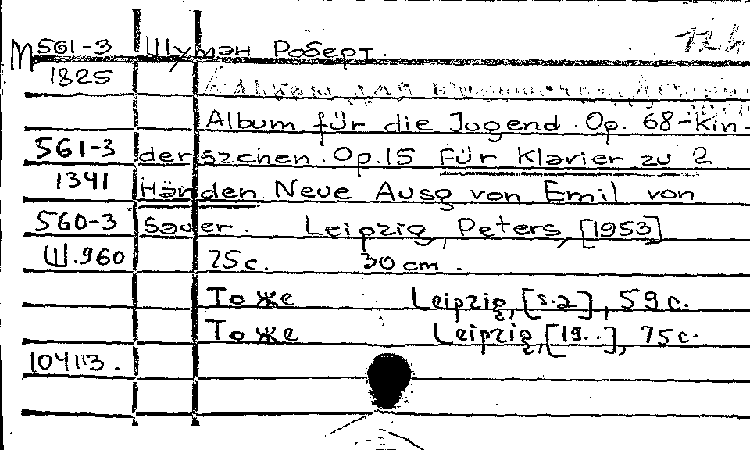 М 561-3 Шуман Роберт. 12 h
1825
Album für die Jugend. Op. 68-Kin-
561-3 derszenen. Op.15 Für Klavier zu 2
1341 Händen Neue Ausg von Emil von
560-3 Sauer. Leipzig, Peters, [1953]
Ш.960 75с. 30 cm.
То же Leipzig, [s.a], 59с.
То же Leipzig, [19..], 75с.
104113.